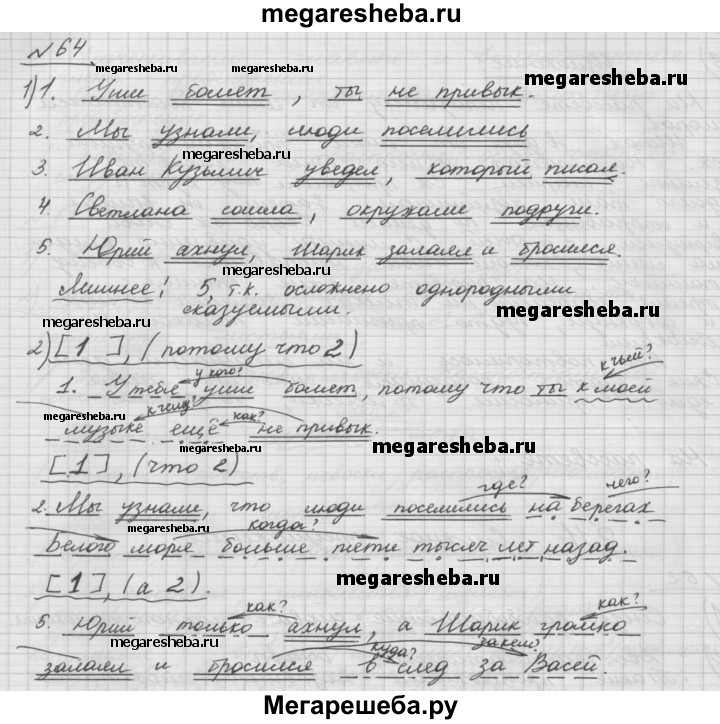 megaresheba.ru
№ 64
megaresheba.ru megaresheba.ru
1) 1. Уши болят, ты не привык.
2. Мы узнали, люди поселились
megaresheba.ru megaresheba.ru
3. Иван Кузьмич уведел, который писал.
4. Светлана сошла, окружали подруги.
5. Юрий ахнул, Шарик залаял и бросился.
megaresheba.ru
Лишнее! 5, т.к. осложнено однородными
сказуемыми. megaresheba.ru
megaresheba.ru
2) [1 ], (потому что 2)
у кого? к чьей?
1. У тебя уши болят, потому что ты к моей
megaresheba.ru к чему? как?
музыке ещё не привык. megaresheba.ru
[1], (что 2)
megaresheba.ru
где? чего?
2. Мы узнали, что люди поселились на берегах
megaresheba.ru когда?
Белого моря больше пяти тысяч лет назад.
[1], (а 2). megaresheba.ru
как? как?
5. Юрий только ахнул, а Шарик громко
megaresheba.ru куда? за кем?
залаял и бросился в след за Васей.
megaresheba.ru
Мегарешеба.ру